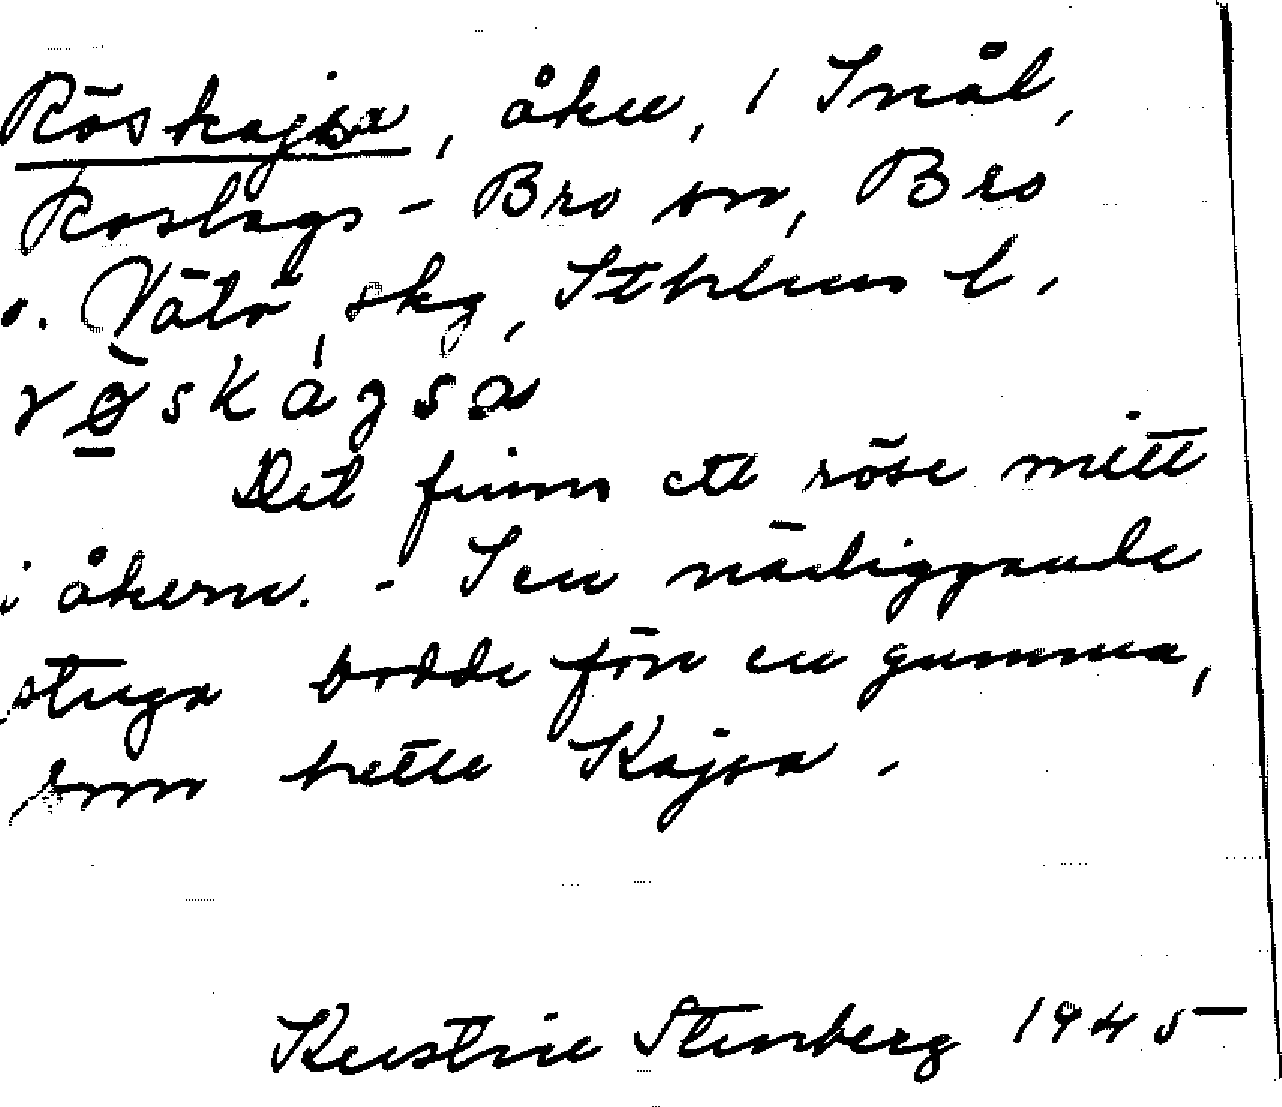 Röskajsa, åker, i Snål,
Roslags-Bro sn, Bro
o. Vätö skg, Sthlms l.
rø̀skágsa
Det finns ett röse mitt
i åkern. - I en närliggande
stuga bodde förr en gumma,
som hette Kajsa.
Kerstin Stenberg 1945